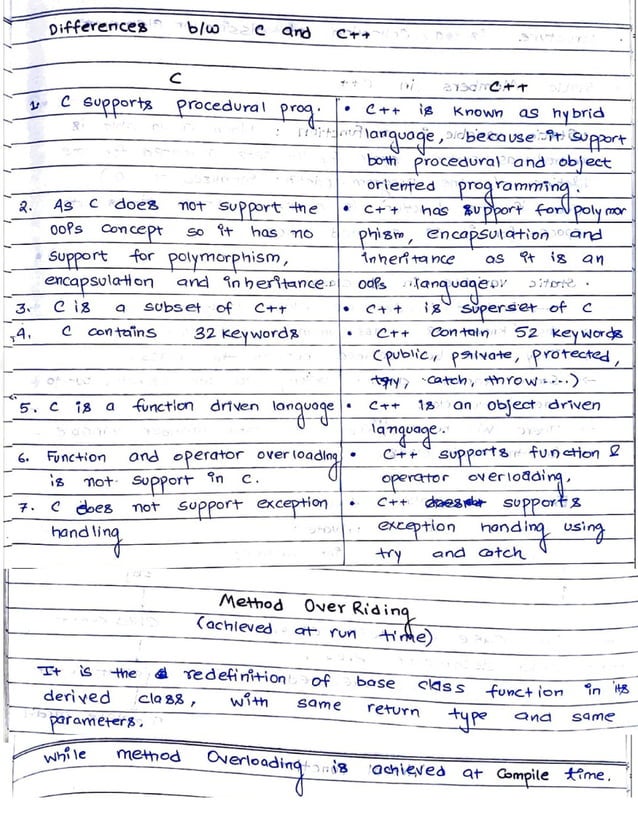 Differences b/w C and C++
C
C++
1. C supports procedural prog.
2. As C does not support the
OOPs concept so it has no
support for polymorphism,
encapsulation and inheritance.
3. C is a subset of C++
4. C contains 32 keywords
5. C is a function driven language
6. Function and operator overloading
is not support in C.
7. C does not support exception
handling
• C++ is known as hybrid
language, because it support
both procedural and object
oriented programming.
• C++ has support for polymor
phism, encapsulation and
inheritance as it is an
OOPs language
• C++ is superset of C
• C++ contain 52 keywords
(public, private, protected,
try, catch, throw ....)
• C++ is an object driven
language.
• C++ supports function &
operator overloading.
• C++ supports
exception handing using
try and catch
Method OverRiding
(achieved at run time)
It is the redefinition of base class function in its
derived class, with same return type and same
parameters.
while method Overloading is achieved at Compile time.